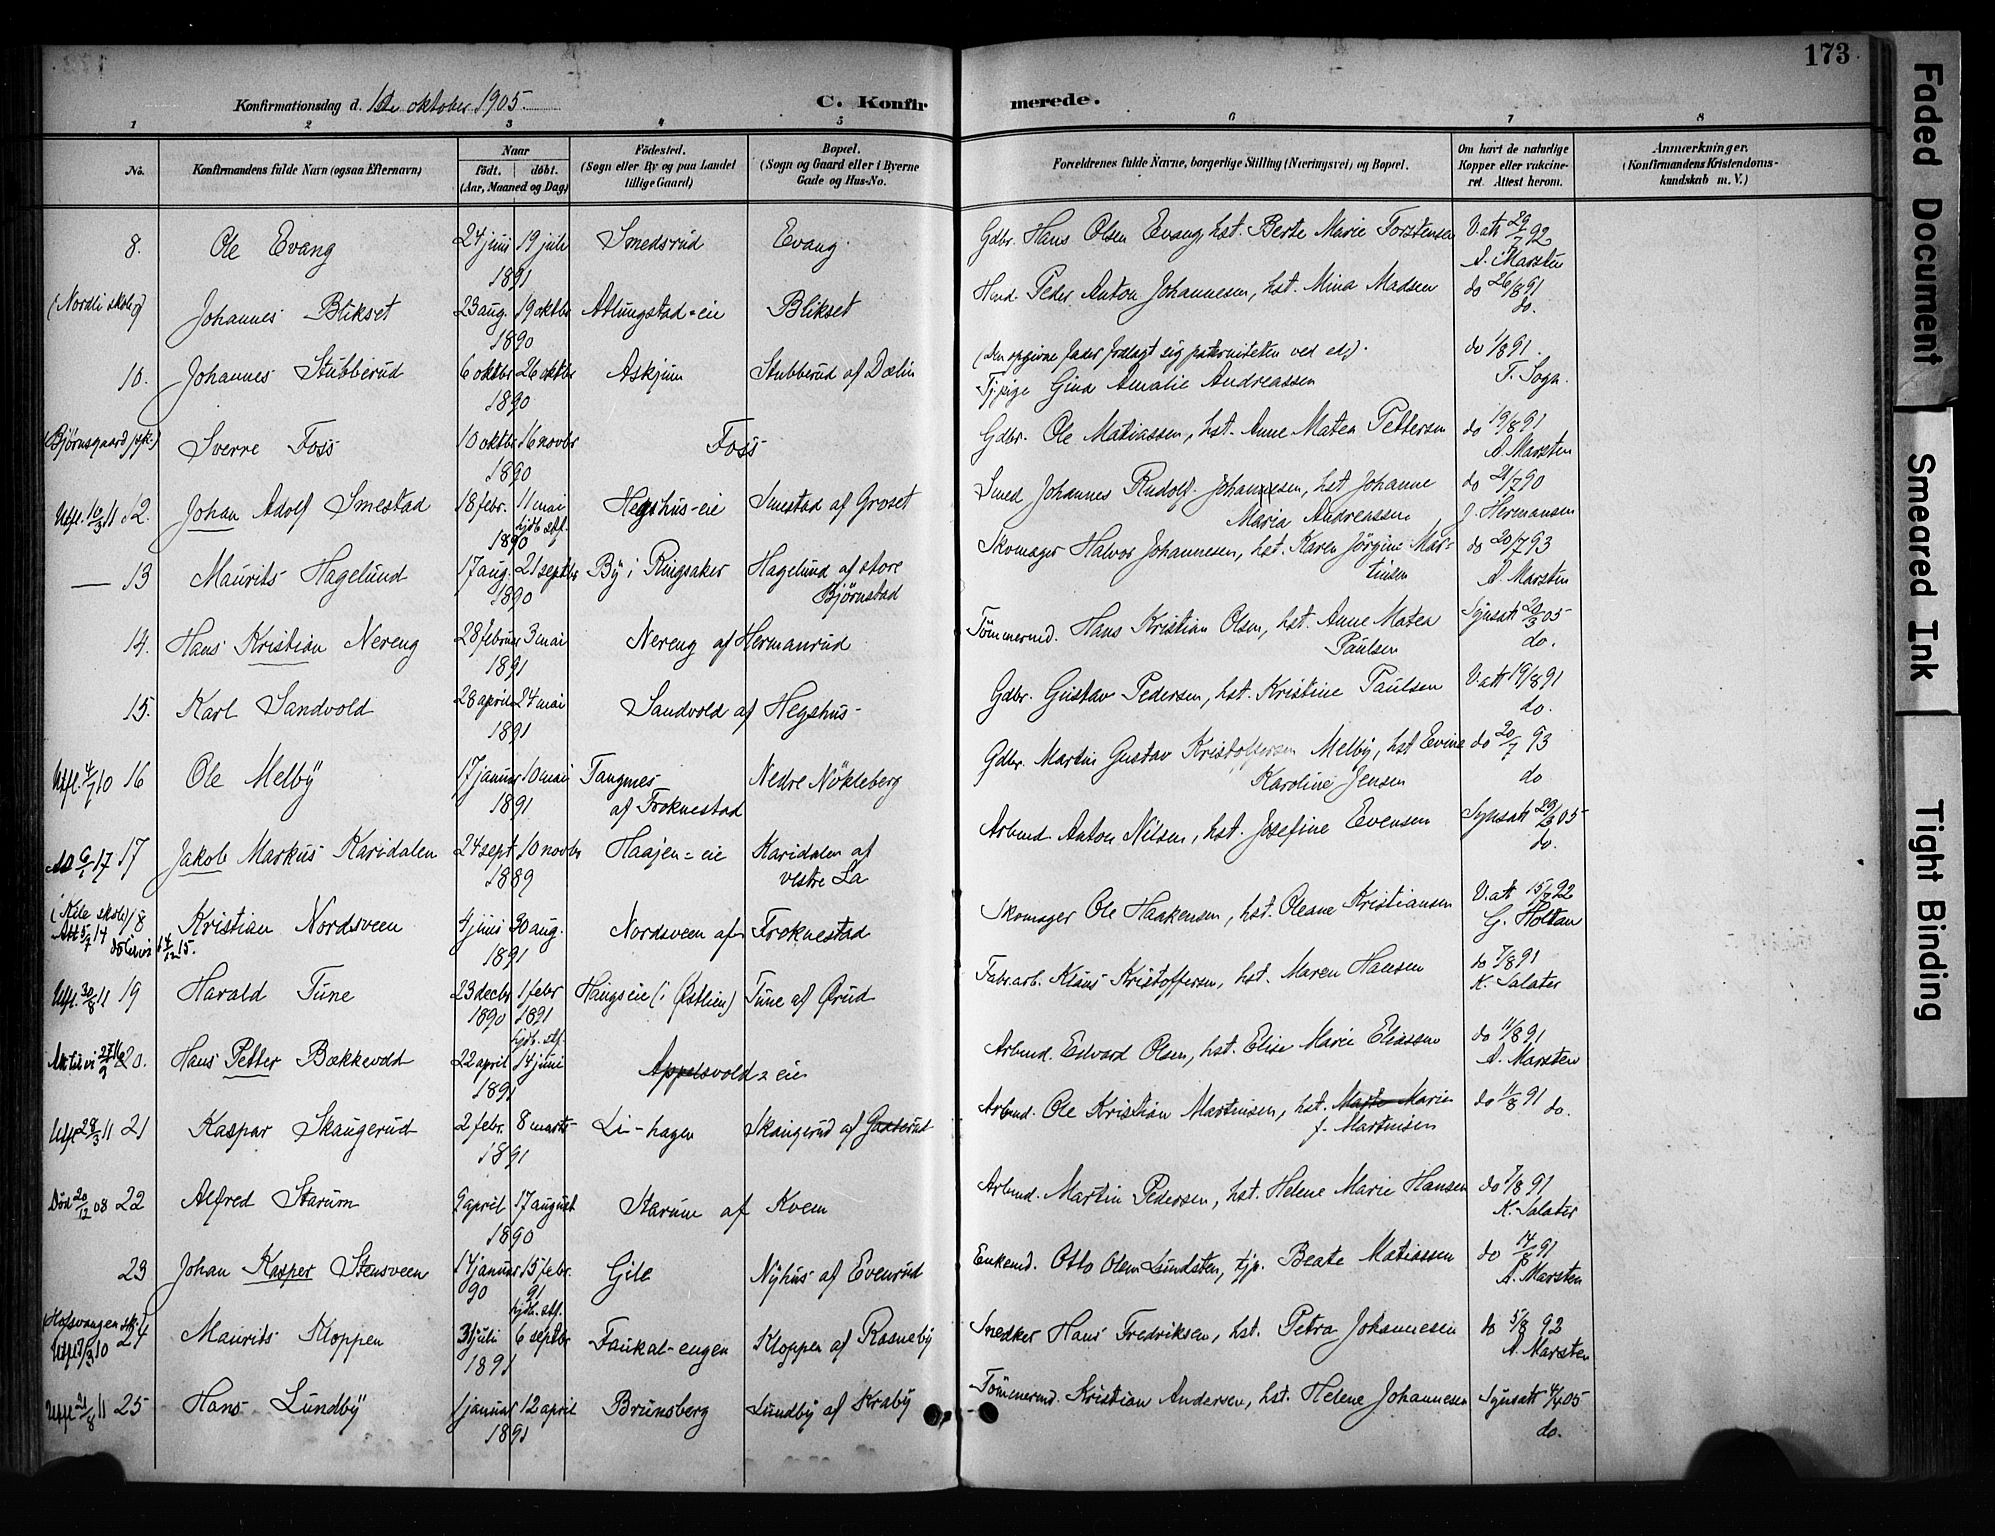 173
Konfirmationsdag d. 1ste oktober 1905.
C. Konfirmerede.
1 2 3 4 5 6 7 8
No.
Konfirmandens fulde Navn (ogsaa Efternavn)
Naar
födt. döbt.
(Aar, Maaned og Dag)
Födested.
(Sogn eller By og paa Landet
tillige Gaard)
Bopæl.
(Sogn og Gaard eller i Byerne
Gade og Hus-No.
Forældrenes fulde Navne, borgerlige Stilling (Næringsvei) og Bopæl.
Om havt de naturlige
Kopper eller vakcine-
ret. Attest herom.
Anmærkninger.
(Konfirmandens Kristendoms-
kundskab m. V.)
8. Ole Evang 24 juni 19 juli 1891 Smedsrud Evang.
Gdbr. Hans Olsen Evang, hst. Berte Marie Torstensen V. att 29/7 92
A. Marsten
(Nordli skole) Johannes Blikset 23 aug. 19 oktbr 1890 Atlungstad-eie Blikset
Hmd. Peder Anton Johannesen, hst. Mina Madsen do 26/8 91
do.
10. Johannes Stubberud 6 oktbr 26 oktbr 1890 Askjum Stubberud af Dælin
(Den opgivne fader fralagt sig paterniteten ved ed.) do 1/8 91
Tj.pige Gina Amalie Andreassen T. Sogn.
(Bjørnsgaard sk.) Sverre Foss 10 oktbr 16 novbr 1890 Foss
Gdbr. Ole Matiassen, hst. Anne Matea Pettersen do 19/8 91
A. Marsten
Utfl. 16/3 11 12. Johan Adolf Smestad 18 febr. 11 mai hjdb. stf. 1890 Hegshus-eie Smestad af Groset
Smed Johannes Rudolf Johannesen, hst Johanne do 21/7 90
Maria Andreassen J. Hermansen
— 13 Maurits Hagelund 17 aug. 21 septbr 1890 By i Ringsaker Hagelund af store
Bjørnstad
Skomager Halvor Johannesen, hst. Karen Jörgine Mar- do 20/7 93
tinsen A. Marsten
14. Hans Kristian Nereng 28 februar 3 mai 1891 Nereng af Hermanrud
Tömmermd. Hans Kristian Olsen, hst. Anne Matea Synsatt 20/3 05
Paulsen do.
15. Karl Sandvold 28 april 24 mai 1891 Sandvold af Hegshus
Gdbr. Gustav Pedersen, hst. Kristine Paulsen V. att 19/8 91
do.
Utfl. 4/7 10 16 Ole Melby 17 januar 10 mai 1891 Tangnes
af Froknestad Nedre Nökleberg
Gdbr. Martin Gustav Kristoffersen Melby, hst Evine do 20/7 93
Karoline Jensen do
17 Jakob Markus Karidalen 24 sept 10 novbr 1889 Haajen-eie Karidalen af
vestre La
Arbmd. Anton Nilsen, hst. Josefine Evensen Synsatt 20/3 05
do.
(Kile skole) 18 Kristian Nordsveen 4 juni 30 aug. 1891 Nordsveen af Froknestad
Skomager Ole Haakensen, hst. Oleane Kristiansen V. att 15/7 92
G. Holtan
Utfl. 30/8 11 19 Harald Tune 23 decbr 1890 1 febr 1891 Haugseie (i Østlien) Tune af Ørud
Fabr.arb. Klaus Kristoffersen, hst. Maren Hansen do 7/8 91
K. Salater
20. Hans Petter Bækkevold 22 april hjdb. stf. 14 juni 1891 Appelsvold-eie
Arbmd. Edvard Olsen, hst. Elise Marie Eliassen do 11/8 91
A. Marsten
Utfl 28/3 11 21 Kaspar Skaugerud 2 febr. 8 marts 1891 Li-hagen Skaugerud af Gaaserud
Arbmd. Ole Kristian Martinisen, hst. Marte Marie do 11/8 91 do.
f. Martinisen
Död 20/12 08 22 Alfred Starum 9 april 17 august 1890 Starum af Kvem
Arbmd. Martin Pedersen, hst. Helene Marie Hansen do 7/8 91
K. Salater
23 Johan Kasper Stensveen 14 januar 90 15 febr. 91 Gile Nyhus af Evenrud
Enkemd. Otto Olsen Lundsten, tjp. Beate Matiassen do 14/8 91
A. Marsten
(Hofsvangen sk.) Utfl 7/3 10 24 Maurits Kloppen 3 juli hjdb. stf. 6 septbr 1891 Faukal-engen Kloppen af Rasneby
Snedker Hans Fredriksen, hst. Petra Johannesen do 5/8 92
A. Marsten
Utfl 21/8 11 25 Hans Lundby 1 januar 12 april 1891 Brunsberg Lundby af Kraby
Tömmermd. Kristian Andersen, hst. Helene Johannesen Synsatt 4/4 05
do.
Faded Document
Smeared Ink
Tight Binding